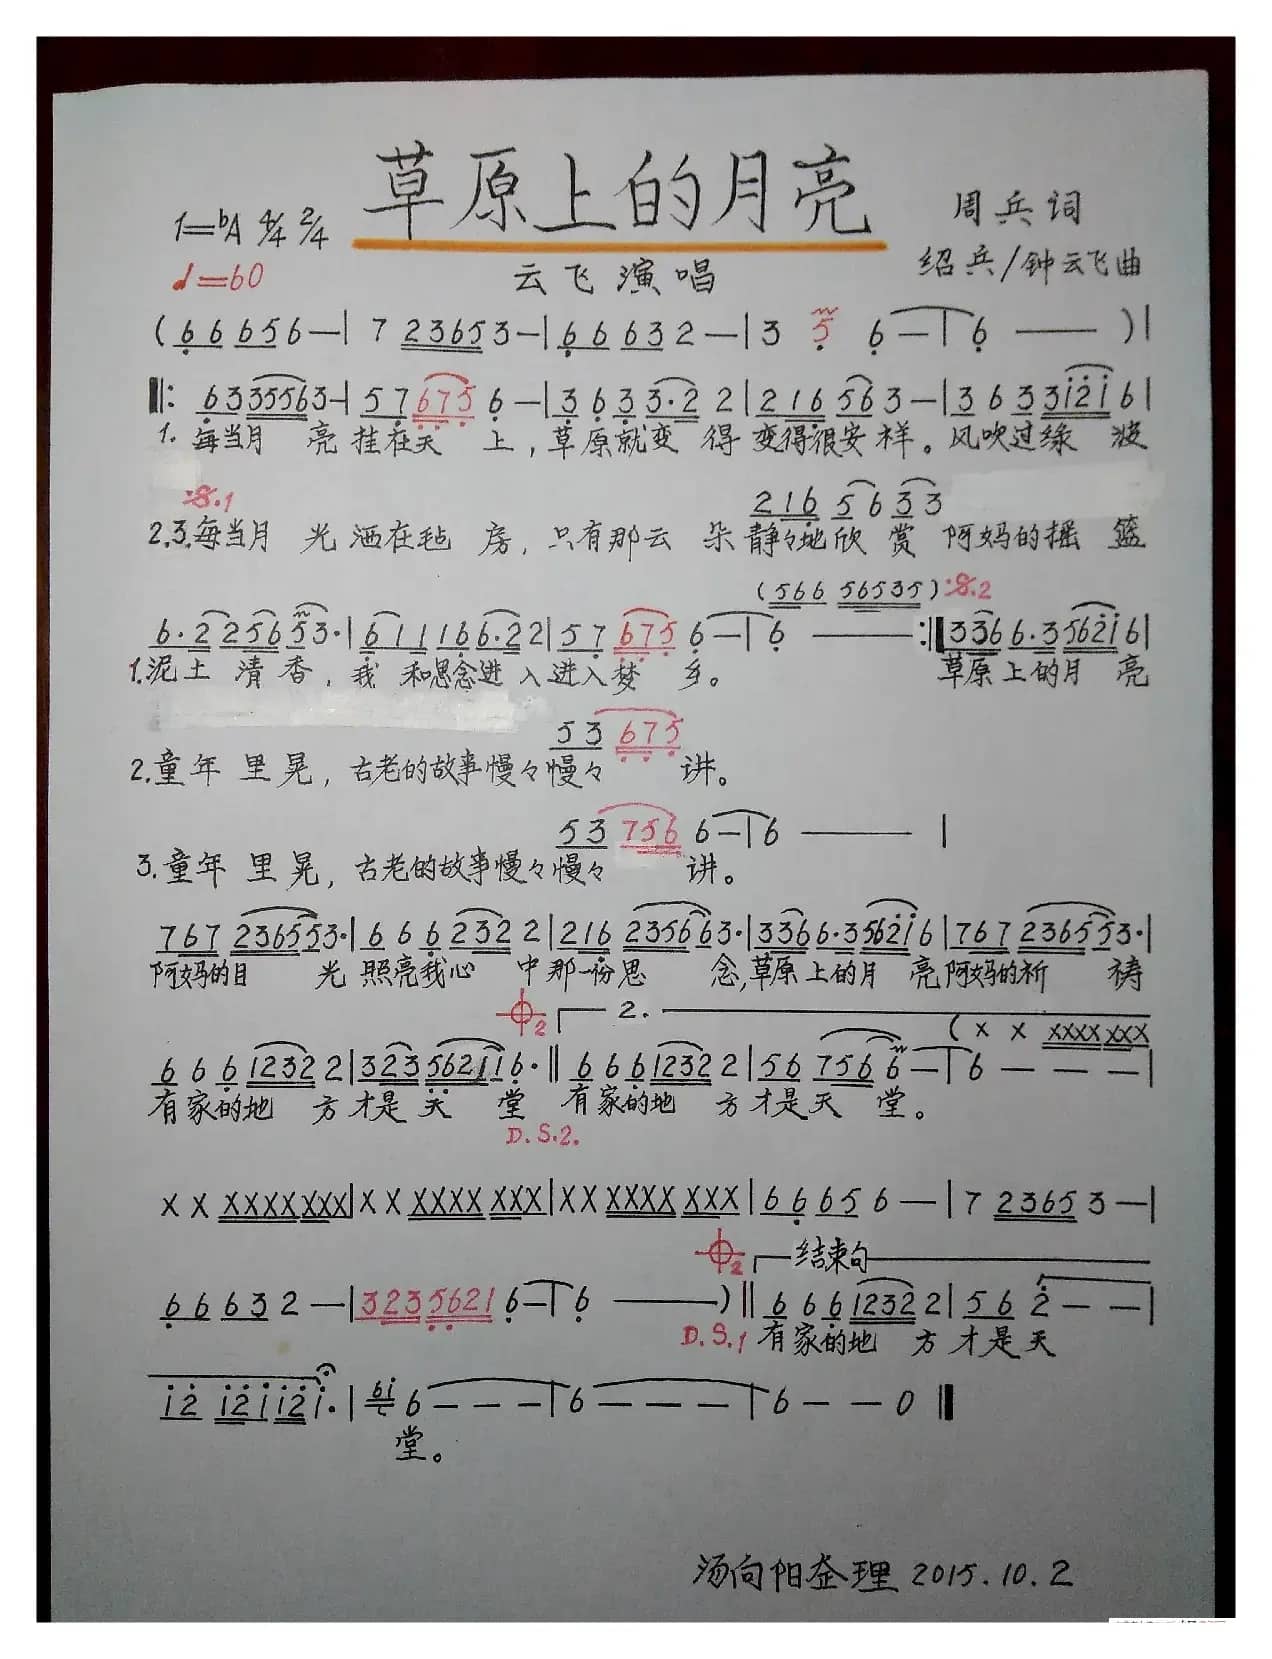 草原上的月亮
1=♭A 4/4 2/4
周兵词
♩=60
云飞演唱
绍兵/钟云飞曲
(6 6 6 5 6 —| 7 2 3 6 5 3 —| 6 6 6 3 2 —| 3 5 6 —| 6 — )|
‖: 6 3 3 5 5 6 3 —| 5 7 6 7 5 6 —| 3 6 3 3·2 2| 2 1 6 5 6 3 —| 3 6 3 3 i 2 i 6|
1. 每当月 亮 挂在天 上，草原就变 得 变得很安 样。风吹过绿 波
:S.1
2 1 6 5 6 3 3
2.3.每当月 光 洒在毡 房，只有那云 朵 静々地欣 赏 阿妈的摇 篮
(5 6 6 5 6 5 3 5) :S.2
6·2 2 5 6 5 3·| 6 1 1 1 6 6·2 2| 5 7 6 7 5 6 —| 6 — :‖ 3 3 6 6·3 5 6 2 i 6|
1.泥土 清 香，我 和思念进 入进入梦 乡。 草原上的月 亮
5 3 6 7 5
2.童年 里 晃，古老的故事慢々慢々 讲。
5 3 7 5 6 6 —| 6 — |
3.童年 里 晃，古老的故事慢々慢々 讲。
7 6 7 2 3 6 5 5 3·| 6 6 6 2 3 2 2| 2 1 6 2 3 5 6 6 3·| 3 3 6 6·3 5 6 2 i 6| 7 6 7 2 3 6 5 5 3·|
阿妈的目 光 照亮我心 中那一份思 念,草原上的月 亮阿妈的祈 祷
2 2. (x x xxxx xxx
6 6 6 1 2 3 2 2| 3 2 3 5 6 2 1 1 6·‖ 6 6 6 1 2 3 2 2| 5 6 7 5 6 6 —| 6 — — —|
有家的地 方才是天 堂 有家的地 方才是天 堂。
D.S.2.
x x xxxx xxx| x x xxxx xxx| x x xxxx xxx| 6 6 6 5 6 —| 7 2 3 6 5 3 —|
2 结束句
6 6 6 3 2 —| 3 2 3 5 6 2 1 6 —| 6 — )‖ 6 6 6 1 2 3 2 2| 5 6 2 — —|
D.S.1 有家的地 方才是天
i 2 i 2 i i 2 i·| 6 i 6 — — —| 6 — — —| 6 — — 0 ‖
堂。
汤向阳整理 2015.10.2